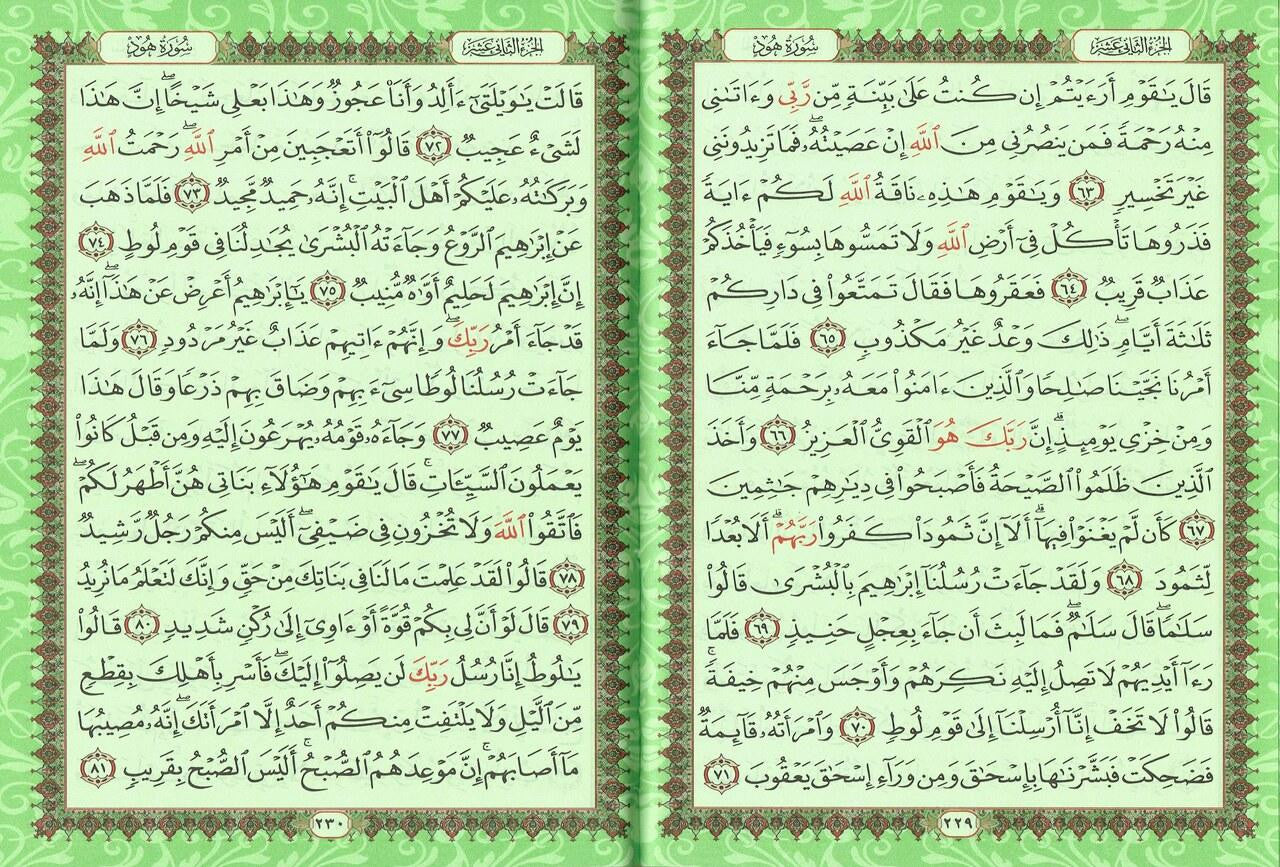 الجزء الثاني عشر
سورة هود
قَالَ يَٰقَوْمِ أَرَءَيْتُمْ إِن كُنتُ عَلَىٰ بَيِّنَةٍ مِّن رَّبِّى وَءَاتَىٰنِى
مِنْهُ رَحْمَةً فَمَن يَنصُرُنِى مِنَ ٱللَّهِ إِنْ عَصَيْتُهُۥۖ فَمَا تَزِيدُونَنِى
غَيْرَ تَخْسِيرٍ ٦٣ وَيَٰقَوْمِ هَٰذِهِۦ نَاقَةُ ٱللَّهِ لَكُمْ ءَايَةً
فَذَرُوهَا تَأْكُلْ فِىٓ أَرْضِ ٱللَّهِ وَلَا تَمَسُّوهَا بِسُوٓءٍ فَيَأْخُذَكُمْ
عَذَابٌ قَرِيبٌ ٦٤ فَعَقَرُوهَا فَقَالَ تَمَتَّعُوا۟ فِى دَارِكُمْ
ثَلَٰثَةَ أَيَّامٍۖ ذَٰلِكَ وَعْدٌ غَيْرُ مَكْذُوبٍ ٦٥ فَلَمَّا جَآءَ
أَمْرُنَا نَجَّيْنَا صَٰلِحًا وَٱلَّذِينَ ءَامَنُوا۟ مَعَهُۥ بِرَحْمَةٍ مِّنَّا
وَمِنْ خِزْىِ يَوْمِئِذٍۗ إِنَّ رَبَّكَ هُوَ ٱلْقَوِىُّ ٱلْعَزِيزُ ٦٦ وَأَخَذَ
ٱلَّذِينَ ظَلَمُوا۟ ٱلصَّيْحَةُ فَأَصْبَحُوا۟ فِى دِيَٰرِهِمْ جَٰثِمِينَ
٦٧ كَأَن لَّمْ يَغْنَوْا۟ فِيهَآۗ أَلَآ إِنَّ ثَمُودَا۟ كَفَرُوا۟ رَبَّهُمْۗ أَلَا بُعْدًا
لِّثَمُودَ ٦٨ وَلَقَدْ جَآءَتْ رُسُلُنَآ إِبْرَٰهِيمَ بِٱلْبُشْرَىٰ قَالُوا۟
سَلَٰمًاۖ قَالَ سَلَٰمٌۖ فَمَا لَبِثَ أَن جَآءَ بِعِجْلٍ حَنِيذٍ ٦٩ فَلَمَّا
رَءَآ أَيْدِيَهُمْ لَا تَصِلُ إِلَيْهِ نَكِرَهُمْ وَأَوْجَسَ مِنْهُمْ خِيفَةًۚ
قَالُوا۟ لَا تَخَفْ إِنَّآ أُرْسِلْنَآ إِلَىٰ قَوْمِ لُوطٍ ٧٠ وَٱمْرَأَتُهُۥ قَآئِمَةٌ
فَضَحِكَتْ فَبَشَّرْنَٰهَا بِإِسْحَٰقَ وَمِن وَرَآءِ إِسْحَٰقَ يَعْقُوبَ ٧١
٢٢٩
الجزء الثاني عشر
سورة هود
قَالَتْ يَٰوَيْلَتَىٰٓ ءَأَلِدُ وَأَنَا۠ عَجُوزٌ وَهَٰذَا بَعْلِى شَيْخًاۖ إِنَّ هَٰذَا
لَشَىْءٌ عَجِيبٌ ٧٢ قَالُوٓا۟ أَتَعْجَبِينَ مِنْ أَمْرِ ٱللَّهِۖ رَحْمَتُ ٱللَّهِ
وَبَرَكَٰتُهُۥ عَلَيْكُمْ أَهْلَ ٱلْبَيْتِۚ إِنَّهُۥ حَمِيدٌ مَّجِيدٌ ٧٣ فَلَمَّا ذَهَبَ
عَنْ إِبْرَٰهِيمَ ٱلرَّوْعُ وَجَآءَتْهُ ٱلْبُشْرَىٰ يُجَٰدِلُنَا فِى قَوْمِ لُوطٍ ٧٤
إِنَّ إِبْرَٰهِيمَ لَحَلِيمٌ أَوَّٰهٌ مُّنِيبٌ ٧٥ يَٰٓإِبْرَٰهِيمُ أَعْرِضْ عَنْ هَٰذَآۖ إِنَّهُۥ
قَدْ جَآءَ أَمْرُ رَبِّكَۖ وَإِنَّهُمْ ءَاتِيهِمْ عَذَابٌ غَيْرُ مَرْدُودٍ ٧٦ وَلَمَّا
جَآءَتْ رُسُلُنَا لُوطًا سِىٓءَ بِهِمْ وَضَاقَ بِهِمْ ذَرْعًا وَقَالَ هَٰذَا
يَوْمٌ عَصِيبٌ ٧٧ وَجَآءَهُۥ قَوْمُهُۥ يُهْرَعُونَ إِلَيْهِ وَمِن قَبْلُ كَانُوا۟
يَعْمَلُونَ ٱلسَّيِّـَٔاتِۚ قَالَ يَٰقَوْمِ هَٰٓؤُلَآءِ بَنَاتِى هُنَّ أَطْهَرُ لَكُمْۖ
فَٱتَّقُوا۟ ٱللَّهَ وَلَا تُخْزُونِ فِى ضَيْفِىٓۖ أَلَيْسَ مِنكُمْ رَجُلٌ رَّشِيدٌ
٧٨ قَالُوا۟ لَقَدْ عَلِمْتَ مَا لَنَا فِى بَنَاتِكَ مِنْ حَقٍّ وَإِنَّكَ لَتَعْلَمُ مَا نُرِيدُ
٧٩ قَالَ لَوْ أَنَّ لِى بِكُمْ قُوَّةً أَوْ ءَاوِىٓ إِلَىٰ رُكْنٍ شَدِيدٍ ٨٠ قَالُوا۟
يَٰلُوطُ إِنَّا رُسُلُ رَبِّكَ لَن يَصِلُوٓا۟ إِلَيْكَۖ فَأَسْرِ بِأَهْلِكَ بِقِطْعٍ
مِّنَ ٱلَّيْلِ وَلَا يَلْتَفِتْ مِنكُمْ أَحَدٌ إِلَّا ٱمْرَأَتَكَۖ إِنَّهُۥ مُصِيبُهَا
مَآ أَصَابَهُمْۚ إِنَّ مَوْعِدَهُمُ ٱلصُّبْحُۚ أَلَيْسَ ٱلصُّبْحُ بِقَرِيبٍ ٨١
٢٣٠